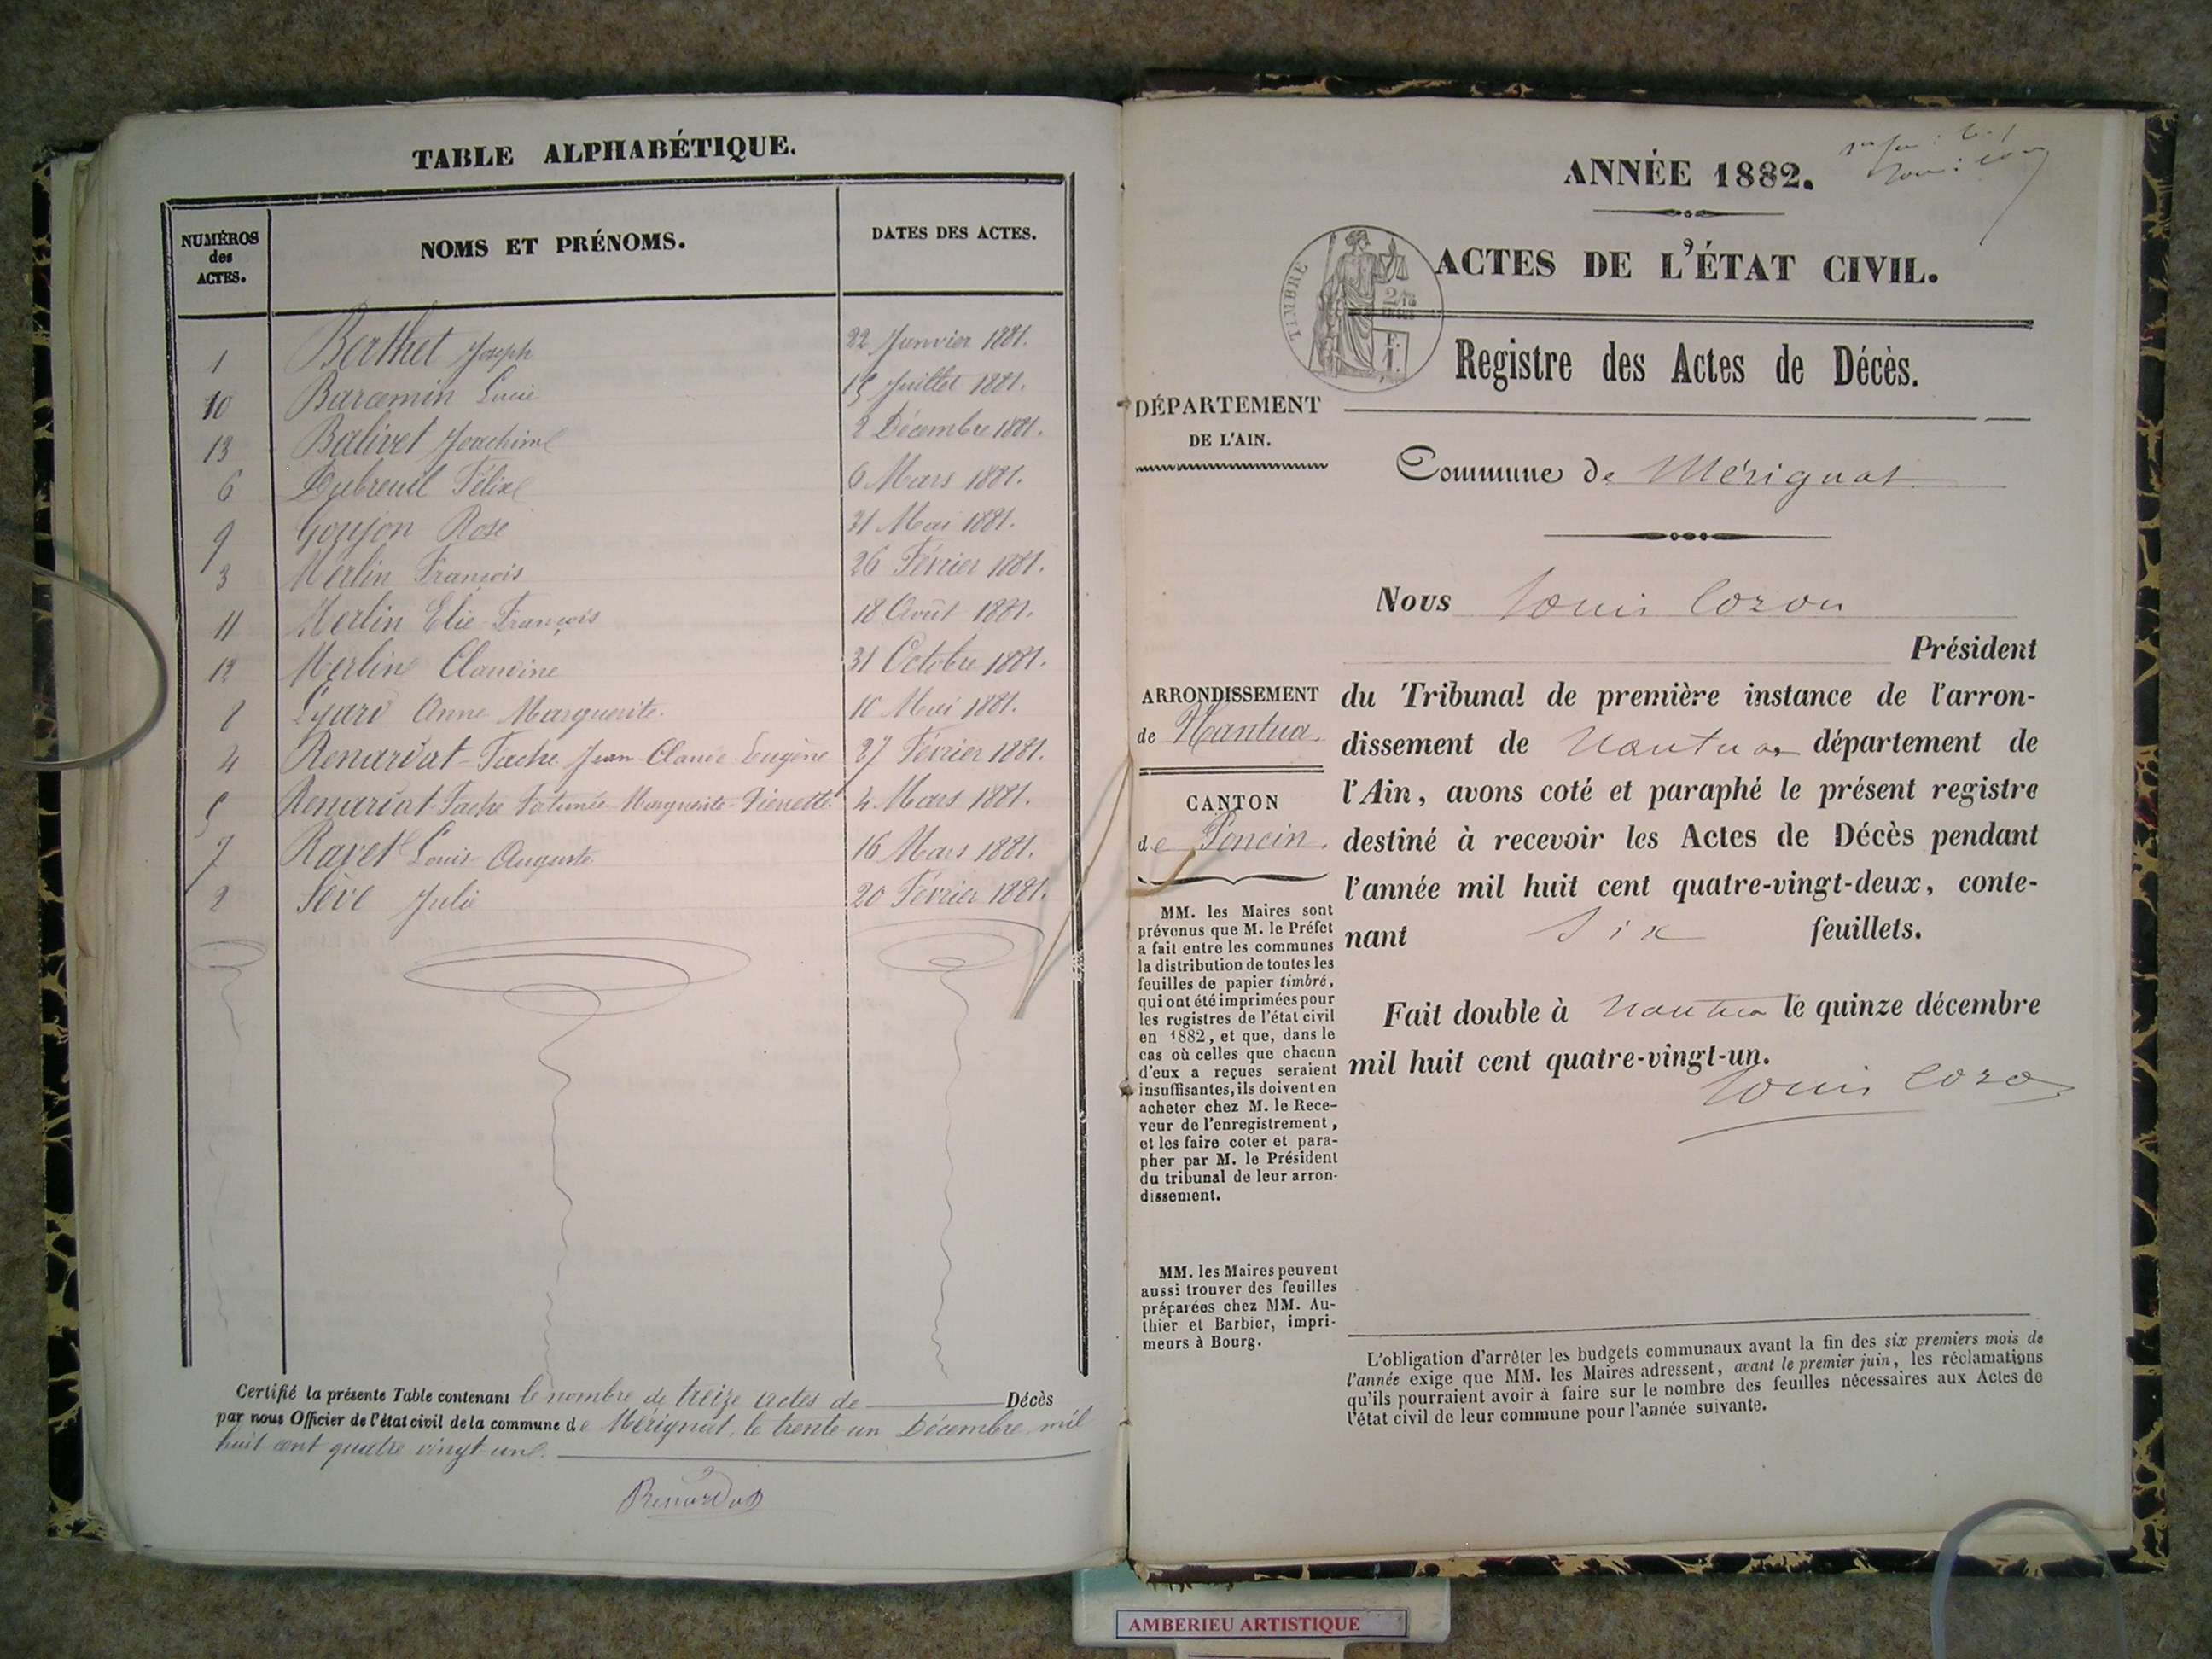 TABLE ALPHABÉTIQUE.
NUMÉROS des ACTES. NOMS ET PRÉNOMS. DATES DES ACTES.
1 Berthet Joseph 22 Janvier 1881.
10 Barcemin Lucie 15 Juillet 1881.
13 Balivet Joachim 2 Décembre 1881.
6 Dubreuil Félix 6 Mars 1881.
9 Goujon Rose 31 Mai 1881.
3 Merlin François 26 Février 1881.
11 Merlin Elie François 18 Août 1881.
12 Merlin Claudine 31 Octobre 1881.
8 Anne Marguerite. Mai 1881.
4 Renardat-Fache Jean-Claude-Eugène 27 Février 1881.
5 Renardat-Fache Marguerite-Pierrette 4 Mars 1881.
7 Ravet Louis Auguste 16 Mars 1881.
2 Sève Julie 20 Février 1881.
Certifié la présente Table contenant le nombre de treize actes de Décès
par nous Officier de l'état civil de la commune de Mérignat, le trente-un Décembre mil
huit cent quatre vingt-un.
Renardat
ANNÉE 1882.
ACTES DE L'ÉTAT CIVIL.
TIMBRE
Registre des Actes de Décès.
DÉPARTEMENT
DE L'AIN.
Commune de Mérignat
Nous Louis Cozon
Président
ARRONDISSEMENT
de Nantua.
CANTON
de Poncin.
du Tribunal de première instance de l'arron-
dissement de Nantua département de
l'Ain, avons coté et paraphé le présent registre
destiné à recevoir les Actes de Décès pendant
l'année mil huit cent quatre-vingt-deux, conte-
nant six feuillets.
Fait double à Nantua le quinze décembre
mil huit cent quatre-vingt-un.
Louis Cozon
MM. les Maires sont
prévenus que M. le Préfet
a fait entre les communes
la distribution de toutes les
feuilles de papier timbré,
qui ont été imprimées pour
les registres de l'état civil
en 1882, et que, dans le
cas où celles que chacun
d'eux a reçues seraient
insuffisantes, ils doivent en
acheter chez M. le Rece-
veur de l'enregistrement,
et les faire coter et para-
pher par M. le Président
du tribunal de leur arron-
dissement.
MM. les Maires peuvent
aussi trouver des feuilles
préparées chez MM. Au-
thier et Barbier, impri-
meurs à Bourg.
L'obligation d'arrêter les budgets communaux avant la fin des six premiers mois de
l'année exige que MM. les Maires adressent, avant le premier juin, les réclamations
qu'ils pourraient avoir à faire sur le nombre des feuilles nécessaires aux Actes de
l'état civil de leur commune pour l'année suivante.
AMBERIEU ARTISTIQUE